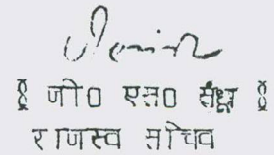 जी० एस० संधू
राजस्व सचिव